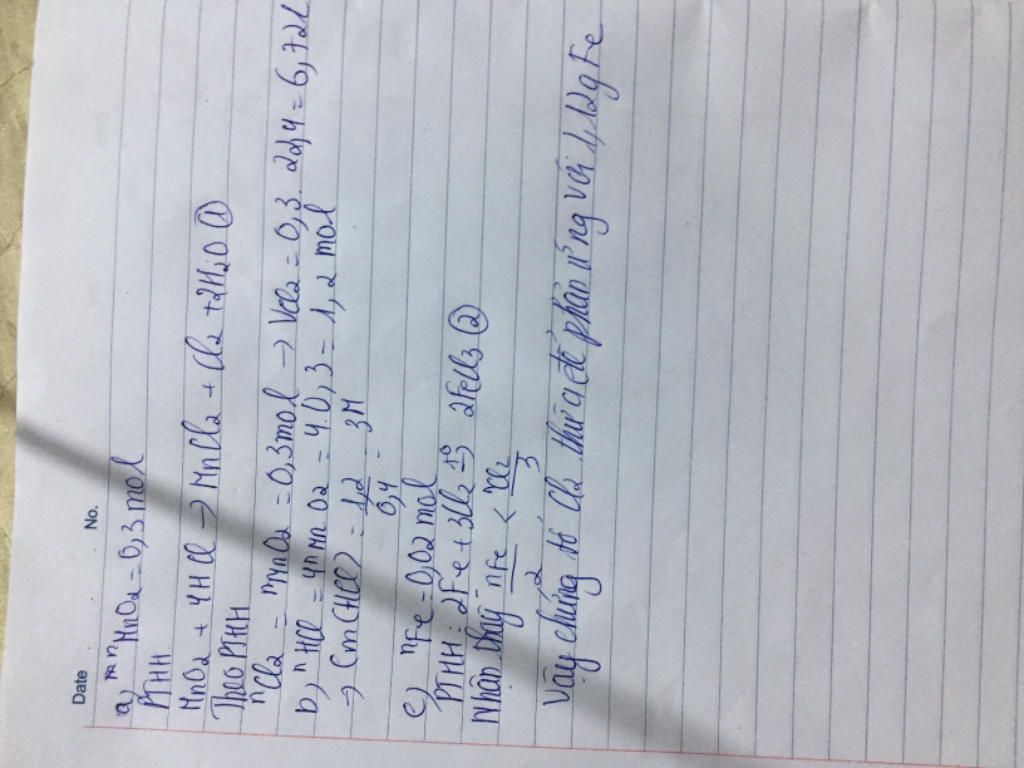 Date No.
a) nMnO2 = 0,3 mol
PTHH
MnO2 + 4HCl → MnCl2 + Cl2 + 2H2O ①
Theo PTHH
nCl2 = nMnO2 = 0,3mol → VCl2 = 0,3. 22,4 = 6,72l
b) nHCl = 4nMnO2 = 4.0,3 = 1,2 mol
→ Cm(HCl) = 1,2/0,4 = 3M
c) nFe = 0,02 mol
PTHH: 2Fe + 3Cl2 t°→ 2FeCl3 ②
Nhận thấy nFe/2 < nCl2/3
Vậy chứng tỏ Cl2 thừa để phản ứng với 1,12g Fe